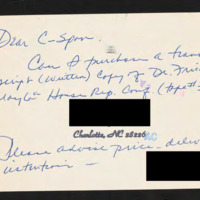 Dear C-Span:
Can I purchase a tran
script (written) copy of Dr. Fried
House Rep. Conf (tape #
Charlotte, NC 28226
Please advise price - deliv